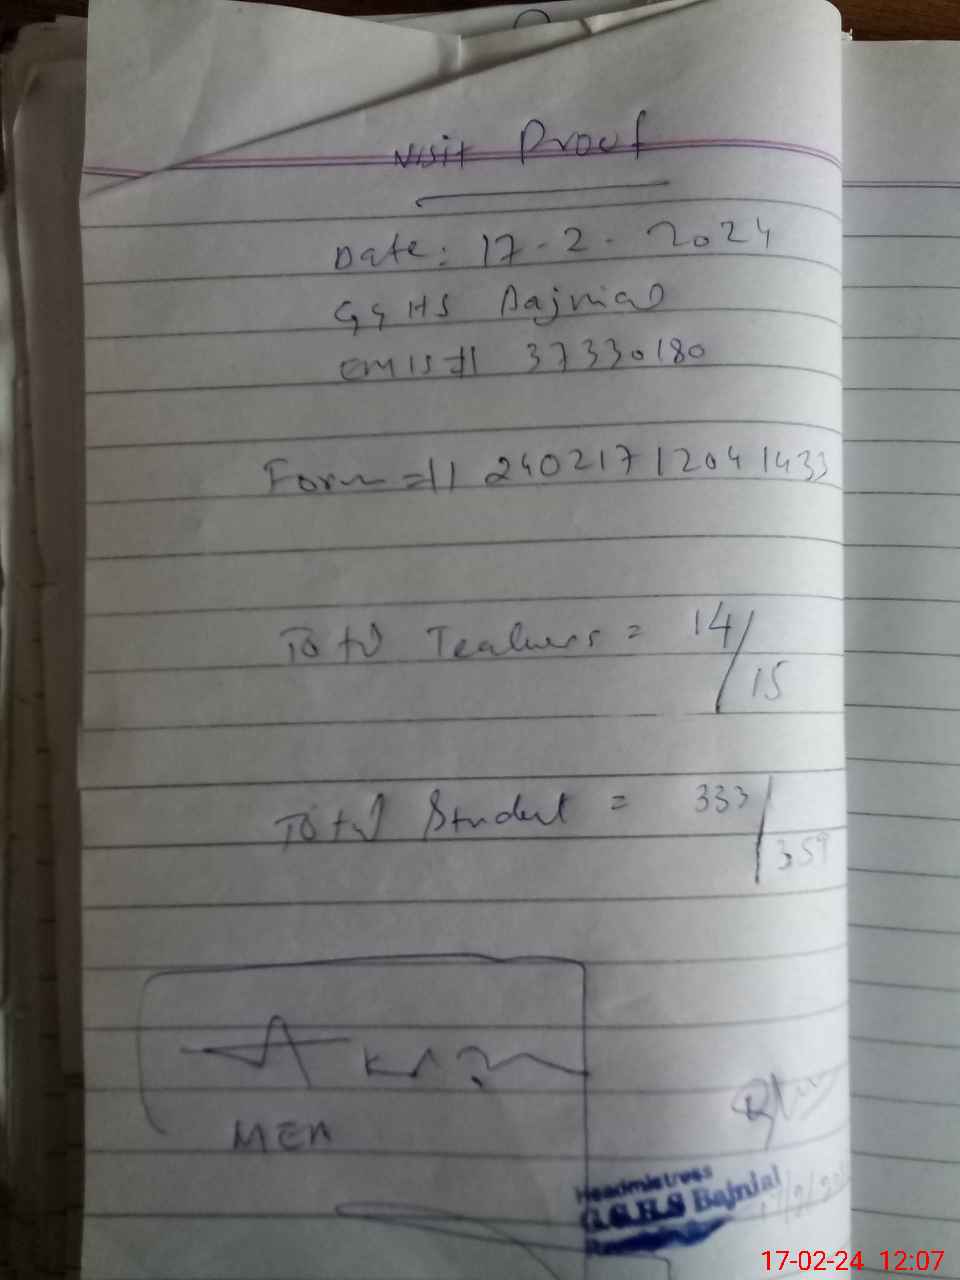 Visit Proof
Date: 17-2-2024
GGHS Bajnial
EMIS# 37330180
Form # 24021712041433
Total Teachers = 14/
15
Total Student = 333/
359
MEA
Headmistress
G.G.H.S Bajnial
17-02-24 12:07